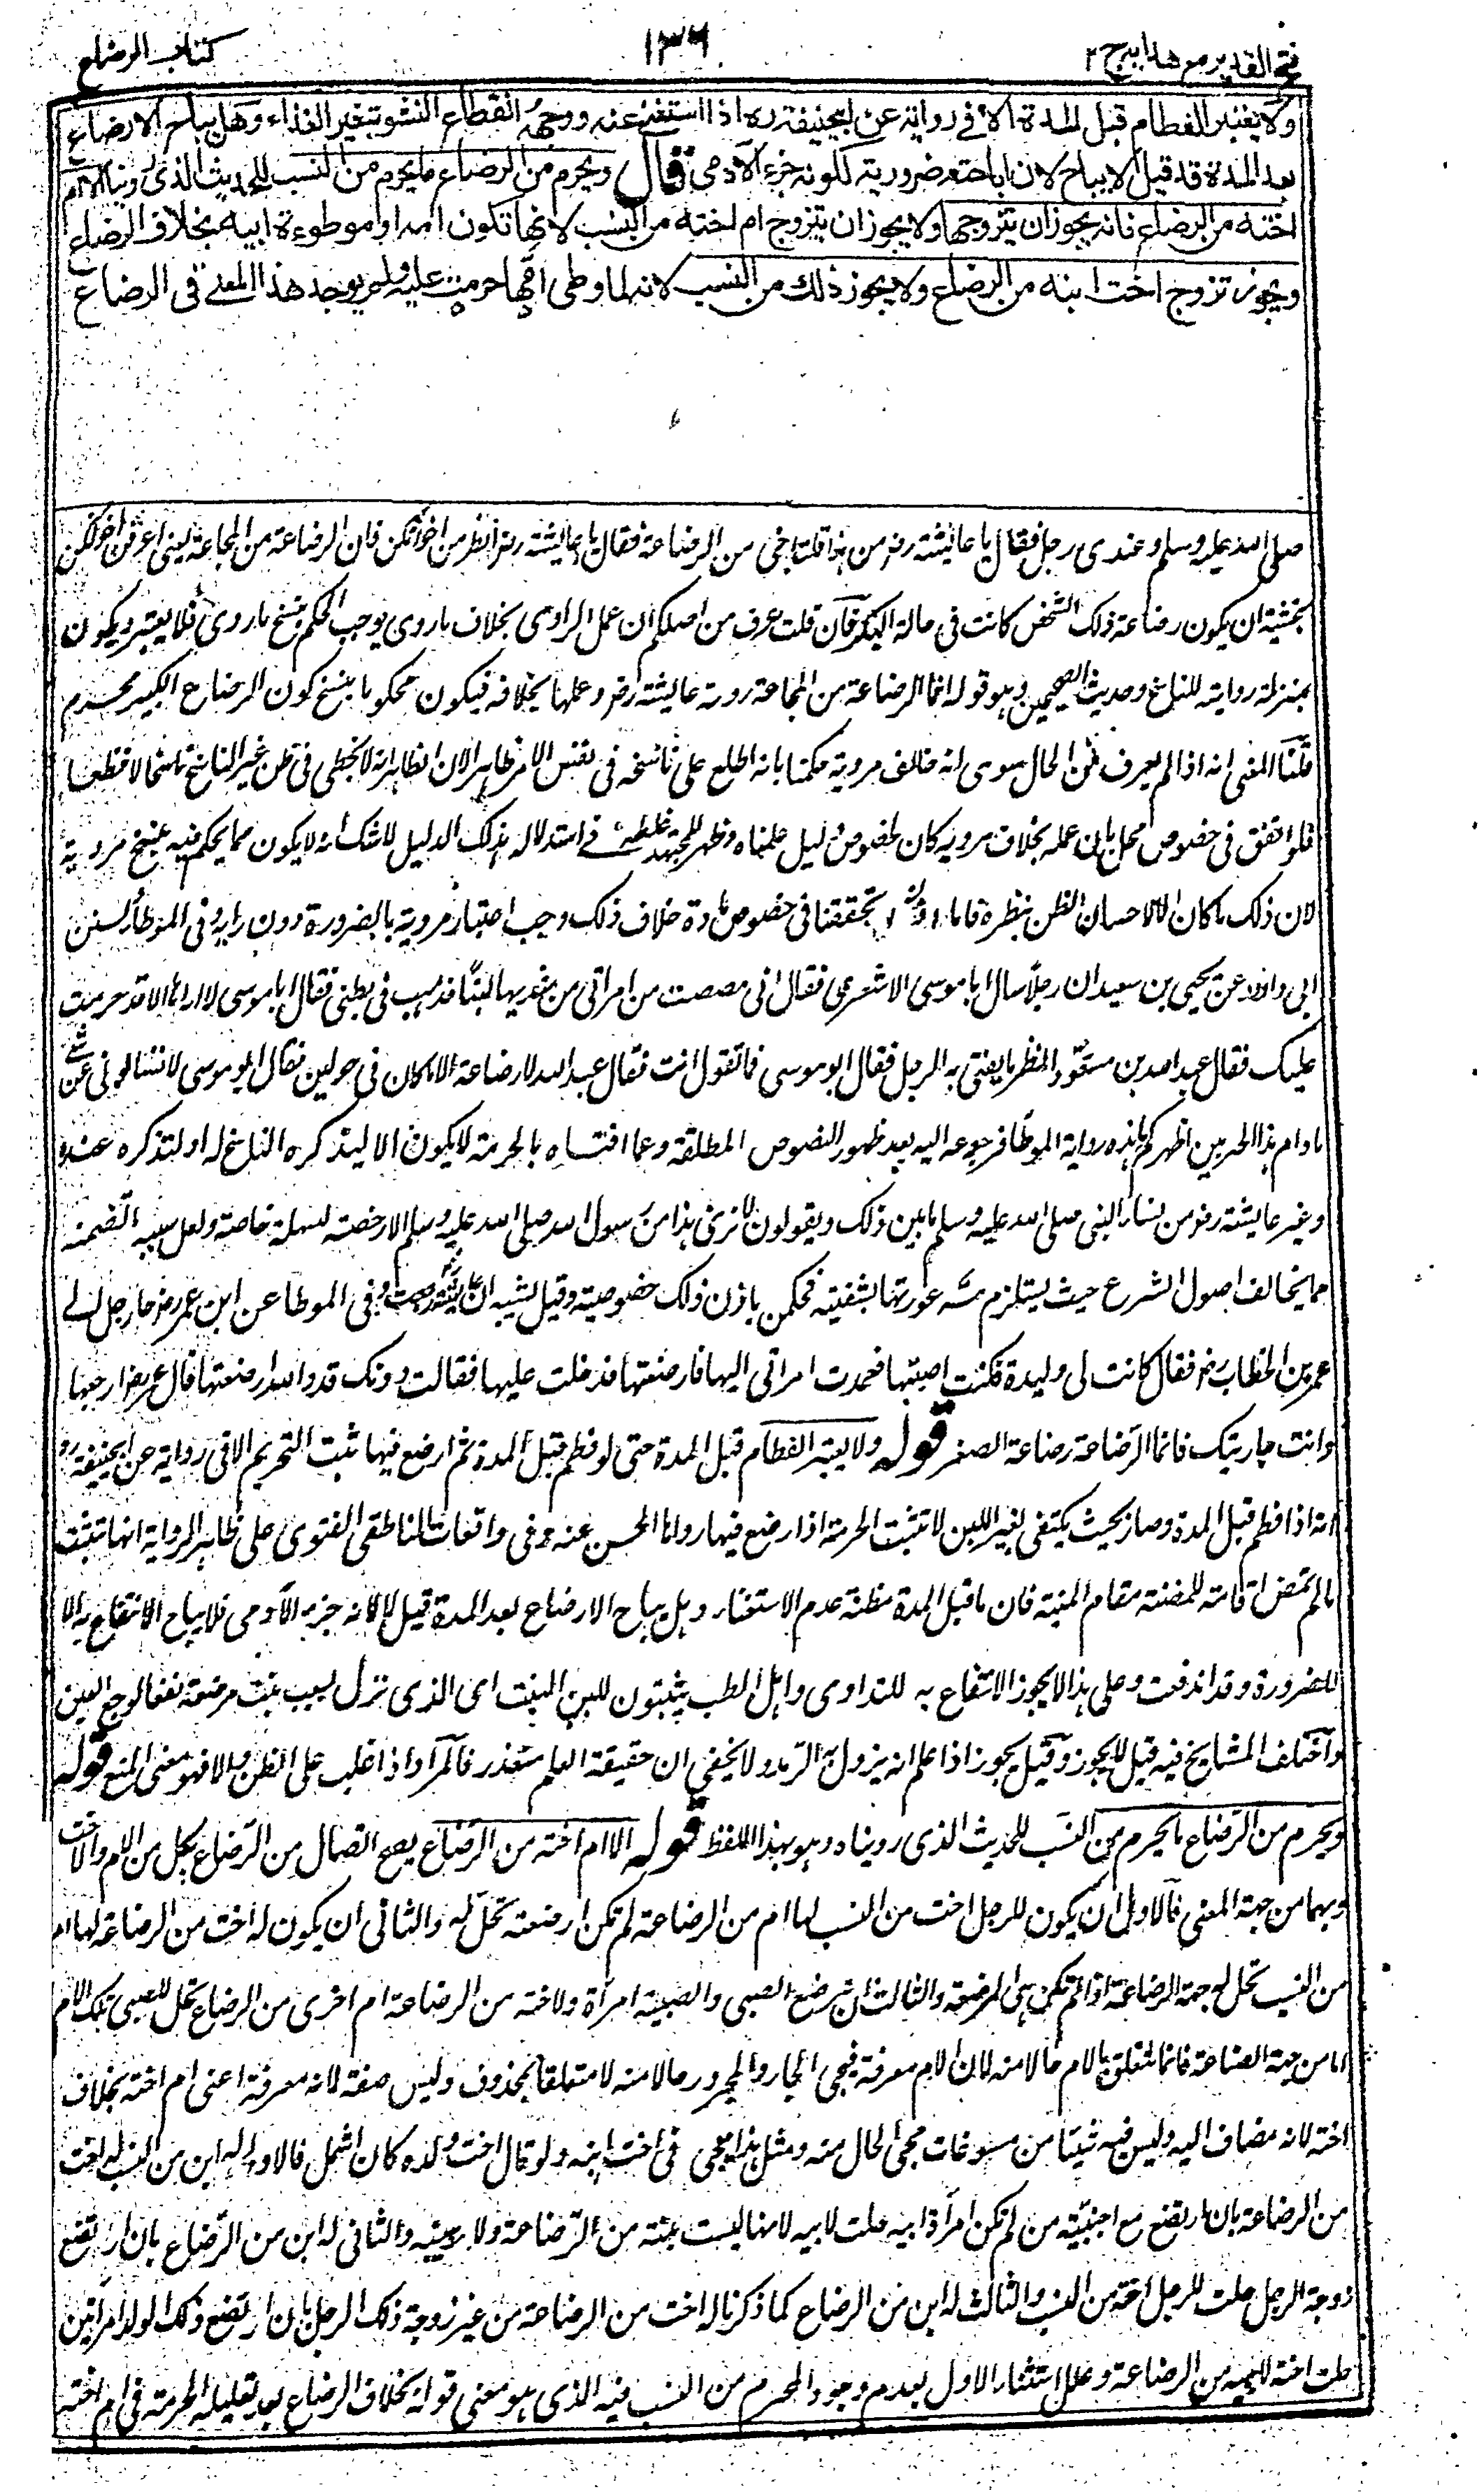 فتح القدير مع هدايه ج ٢
١٣٦
كتاب الرضاع
ولا يعتبر الفطام قبل المدة الا في رواية عن ابي حنيفة ره اذا استغنى عنه ووجهه انقطاع النشو بتغير الغذاء وهل يباح الارضاع
بعد المدة قد قيل لا يباح لان اباحته ضرورية لكونه جزء الآدمي قال ويحرم من الرضاع ما يحرم من النسب للحديث الذي روينا الا ام
اخته من الرضاع فانه يجوز ان يتزوجها ولا يجوز ان يتزوج ام اخته من النسب لانها تكون امه او موطوءة ابيه بخلاف الرضاع
ويجوز تزوج اخت ابنه من الرضاع ولا يجوز ذلك من النسب لانه لما وطى امها حرمت عليه ولم يوجد هذا المعنى في الرضاع
صلى الله عليه وسلم وعندى رجل فقال يا عائشة رض من هذا قلت اخى من الرضاعة فقال يا عائشة رض انظرن من اخوانكن فان الرضاعة من المجاعة يعنى اعرفن اخوانكن
بخشية ان يكون رضاعة ذلك الشخص كانت فى حالة الكبر فان قلت عرف من اصلكم ان عمل الراوى بخلاف ما روى يوجب الحكم بنسخ ما روى فلا يعتبر ويكون
بمنزلة رواية للناسخ وحديث الصحيحين وهو قوله انما الرضاعة من المجاعة روته عايشة رض وعملها بخلافه فيكون محكوما بنسخ كون الرضاع الكبير محرم
قلنا المعنى انه اذا لم يعرف من الحال سوى انه خالف مرويه حكمنا بانه اطلع على ناسخه فى نفس الامر ظاهرا لان الظاهر انه لا يخطى فى ظن غير الناسخ ناسخا لا قطعا
فلو اتفق فى خصوص محل بان عمله بخلاف مرويه كان لخصوص دليل علمناه وظهر للمجتهد غلطه فى استدلاله بذلك الدليل لا شك انه لا يكون مما يحكم فيه بنسخ مرويه
لان ذلك ما كان الا لاحسان الظن بنظره فاما اذا تحققنا فى خصوص مادة خلاف ذلك وجب اعتبار مرويه بالضرورة دون رايه وفى الموطأ وسنن
ابى داؤد عن يحيى بن سعيد ان رجلا سال ابا موسى الاشعرى فقال انى مصصت من امراتى من ثديها لبنا فذهب فى بطنى فقال ابا موسى لا اراها الا قد حرمت
عليك فقال عبد الله بن مسعود انظر ما يفتى به الرجل فقال ابو موسى فما تقول انت فقال عبد الله لا رضاعة الا ما كان فى حولين فقال ابو موسى لا تسئالونى عن شئ
ما دام هذا الحبر بين اظهركم هذه رواية الموطأ فرجوعه اليه بعد ظهور النصوص المطلقة وعما افتاه بالحرمة لا يكون الا لذكره الناسخ له او لتذكره عنده
وغير عايشة رض من نساء النبى صلى الله عليه وسلم يأبين ذلك ويقولون لا نرى هذا من رسول الله صلى الله عليه وسلم الا رخصة لسهلة خاصة ولعل سببه ما تضمنه
مما يخالف اصول الشرع حيث يستلزم مسه عورتها بشفتيه فحكمن بان ذلك خصوصية وقيل يشبه ان وفى الموطا عن ابن عمر رض جاء رجل الى
عمر بن الخطاب رض فقال كانت لى وليدة فكنت اصيبها فعمدت امراتى اليها فارضعتها فدخلت عليها فقالت دونك قد والله ارضعتها قال عمر رض ارجعها
وائت جاريتك فانما الرضاعة رضاعة الصغر قوله ولا يعتبر الفطام قبل المدة حتى لو فطم قبل المدة ثم ارضع فيها ثبت التحريم الا فى رواية عن ابى حنيفة ره
انه اذا فطم قبل المدة وصار بحيث يكتفى بغير اللبن لا تثبت الحرمة اذا رضع فيها رواها الحسن عنه وفى واقعات الناطفى الفتوى على ظاهر الرواية انها تثبت
ما لم تمض اقامة للمظنة مقام المئنة فان ما قبل المدة مظنة عدم الاستغناء وهل يباح الارضاع بعد المدة قيل لا لانه جزء الآدمى فلا يباح الانتفاع به الا
للضرورة وقد اندفعت وعلى هذا لا يجوز الانتفاع به للتداوى واهل الطب يثبتون للبن البنت اى الذى نزل بسبب بنت مرضعة نفعا لوجع العين
واختلف المشايخ فيه قيل لا يجوز وقيل يجوز اذا علم انه يزول به الرمد ولا يخفى ان حقيقة العلم متعذر فالمراد اذا غلب على الظن والا فهو معنى المنع قوله
ويحرم من الرضاع ما يحرم من النسب للحديث الذى رويناه وهو بهذا اللفظ قوله الا ام اخته من الرضاع يصح اتصال من الرضاع بكل من الام والاخت
وبهما من جهة المعنى فالاول ان يكون للرجل اخت من النسب لها ام من الرضاعة لم تكن ارضعته تحل له والثانى ان يكون له اخت من الرضاعة لها ام
من النسب تحل له جهة الرضاعة اذا لم تكن هى المرضعة والثالث ان ترضع الصبى والصبية امرأة ولاخته من الرضاعة ام اخرى من الرضاع تحل للصبى تلك الام
اما من جهة الصناعة فانما تتعلق بالام حالا منه لان الام معرفة فيجى الجار والمجرور حالا منه لا متعلقا بمحذوف وليس صفة لانه معرفة اعنى ام اخته بخلاف
اخته لانه مضاف اليه وليس فيه شيئا من مسوغات مجئ الحال منه ومثل هذا يجى فى اخت ابنه ولو قال اخت ولده كان اشمل فالاول له ابن من النسب له اخت
من الرضاعة بان ارتضع مع اجنبية من لم تكن امرأة ابيه حلت لابيه لانها ليست بنته من الرضاعة ولا ربيبته والثانى له ابن من الرضاع بان ارتضع
زوجة الرجل حلت للرجل اخته من النسب والثالث له ابن من الرضاع كما ذكرنا له اخت من الرضاعة من غير زوجة ذلك الرجل بان ارتضع ذلك الولد امراتين
حلت اخته لابيه من الرضاعة وعلل استثناء الاول بعدم وجود المحرم من النسب فيه الذى هو معنى قوله بخلاف الرضاع بعد تعليله الحرمة فى ام اخته